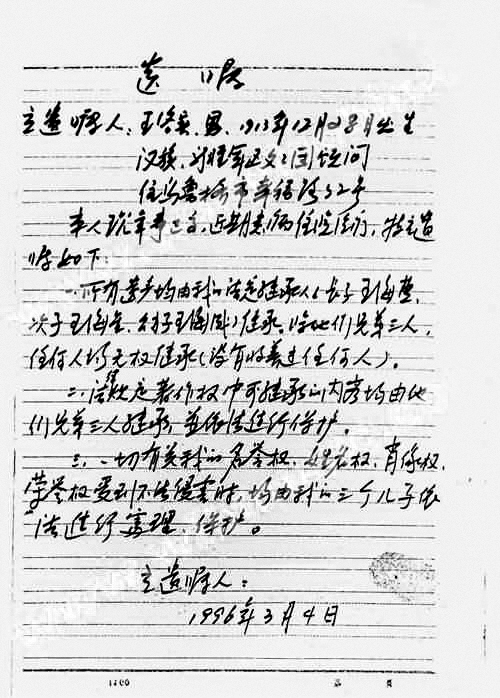 遗 嘱
立遗嘱人:王洛宾、男、1913年12月28日出生
汉族、新疆军区文工团顾问
住乌鲁木齐市幸福路32号
本人现年事已高,近期患病住院医疗,特立遗
嘱如下:
一.所有遗产均由我的法定继承人(长子王海燕,
次子王海星、幼子王海成)继承,除他们兄弟三人,
任何人均无权继承(没有收养过任何人)。
二.法规定著作权中可继承的内容均由他
们兄弟三人继承,并依法进行保护。
三.一切有关我的名誉权、姓名权、肖像权、
荣誉权受到不法侵害时,均由我的三个儿子依
法进行审理、保护。
立遗嘱人:
1996年3月4日